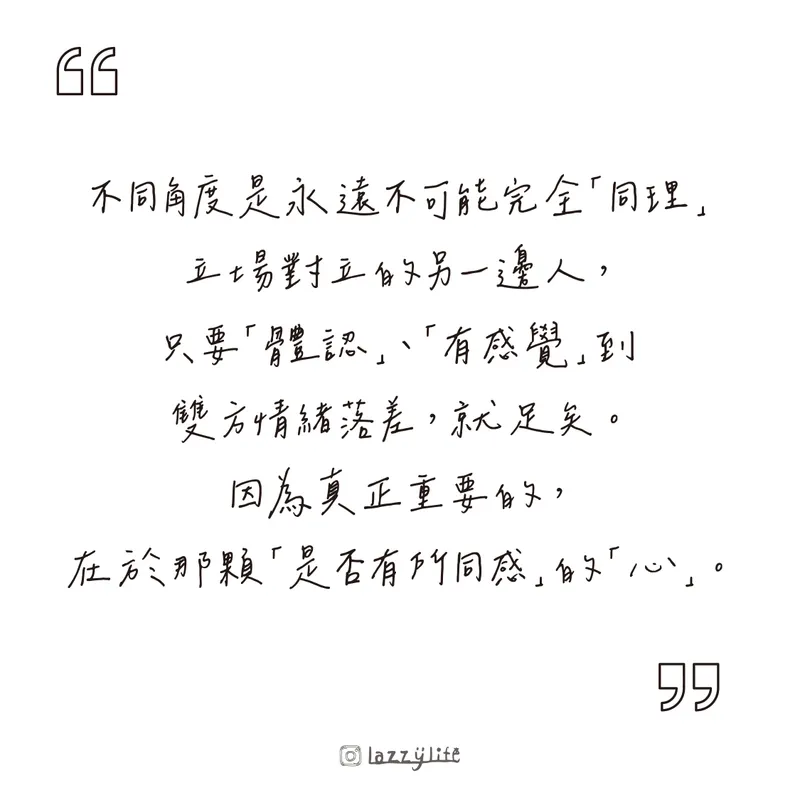 不同角度是永遠不可能完全「同理」
立場對立的另一邊人，
只要「體認」、「有感覺」到
雙方情緒落差，就足矣。
因為真正重要的，
在於那顆「是否有所同感」的「心」。
lazzylife